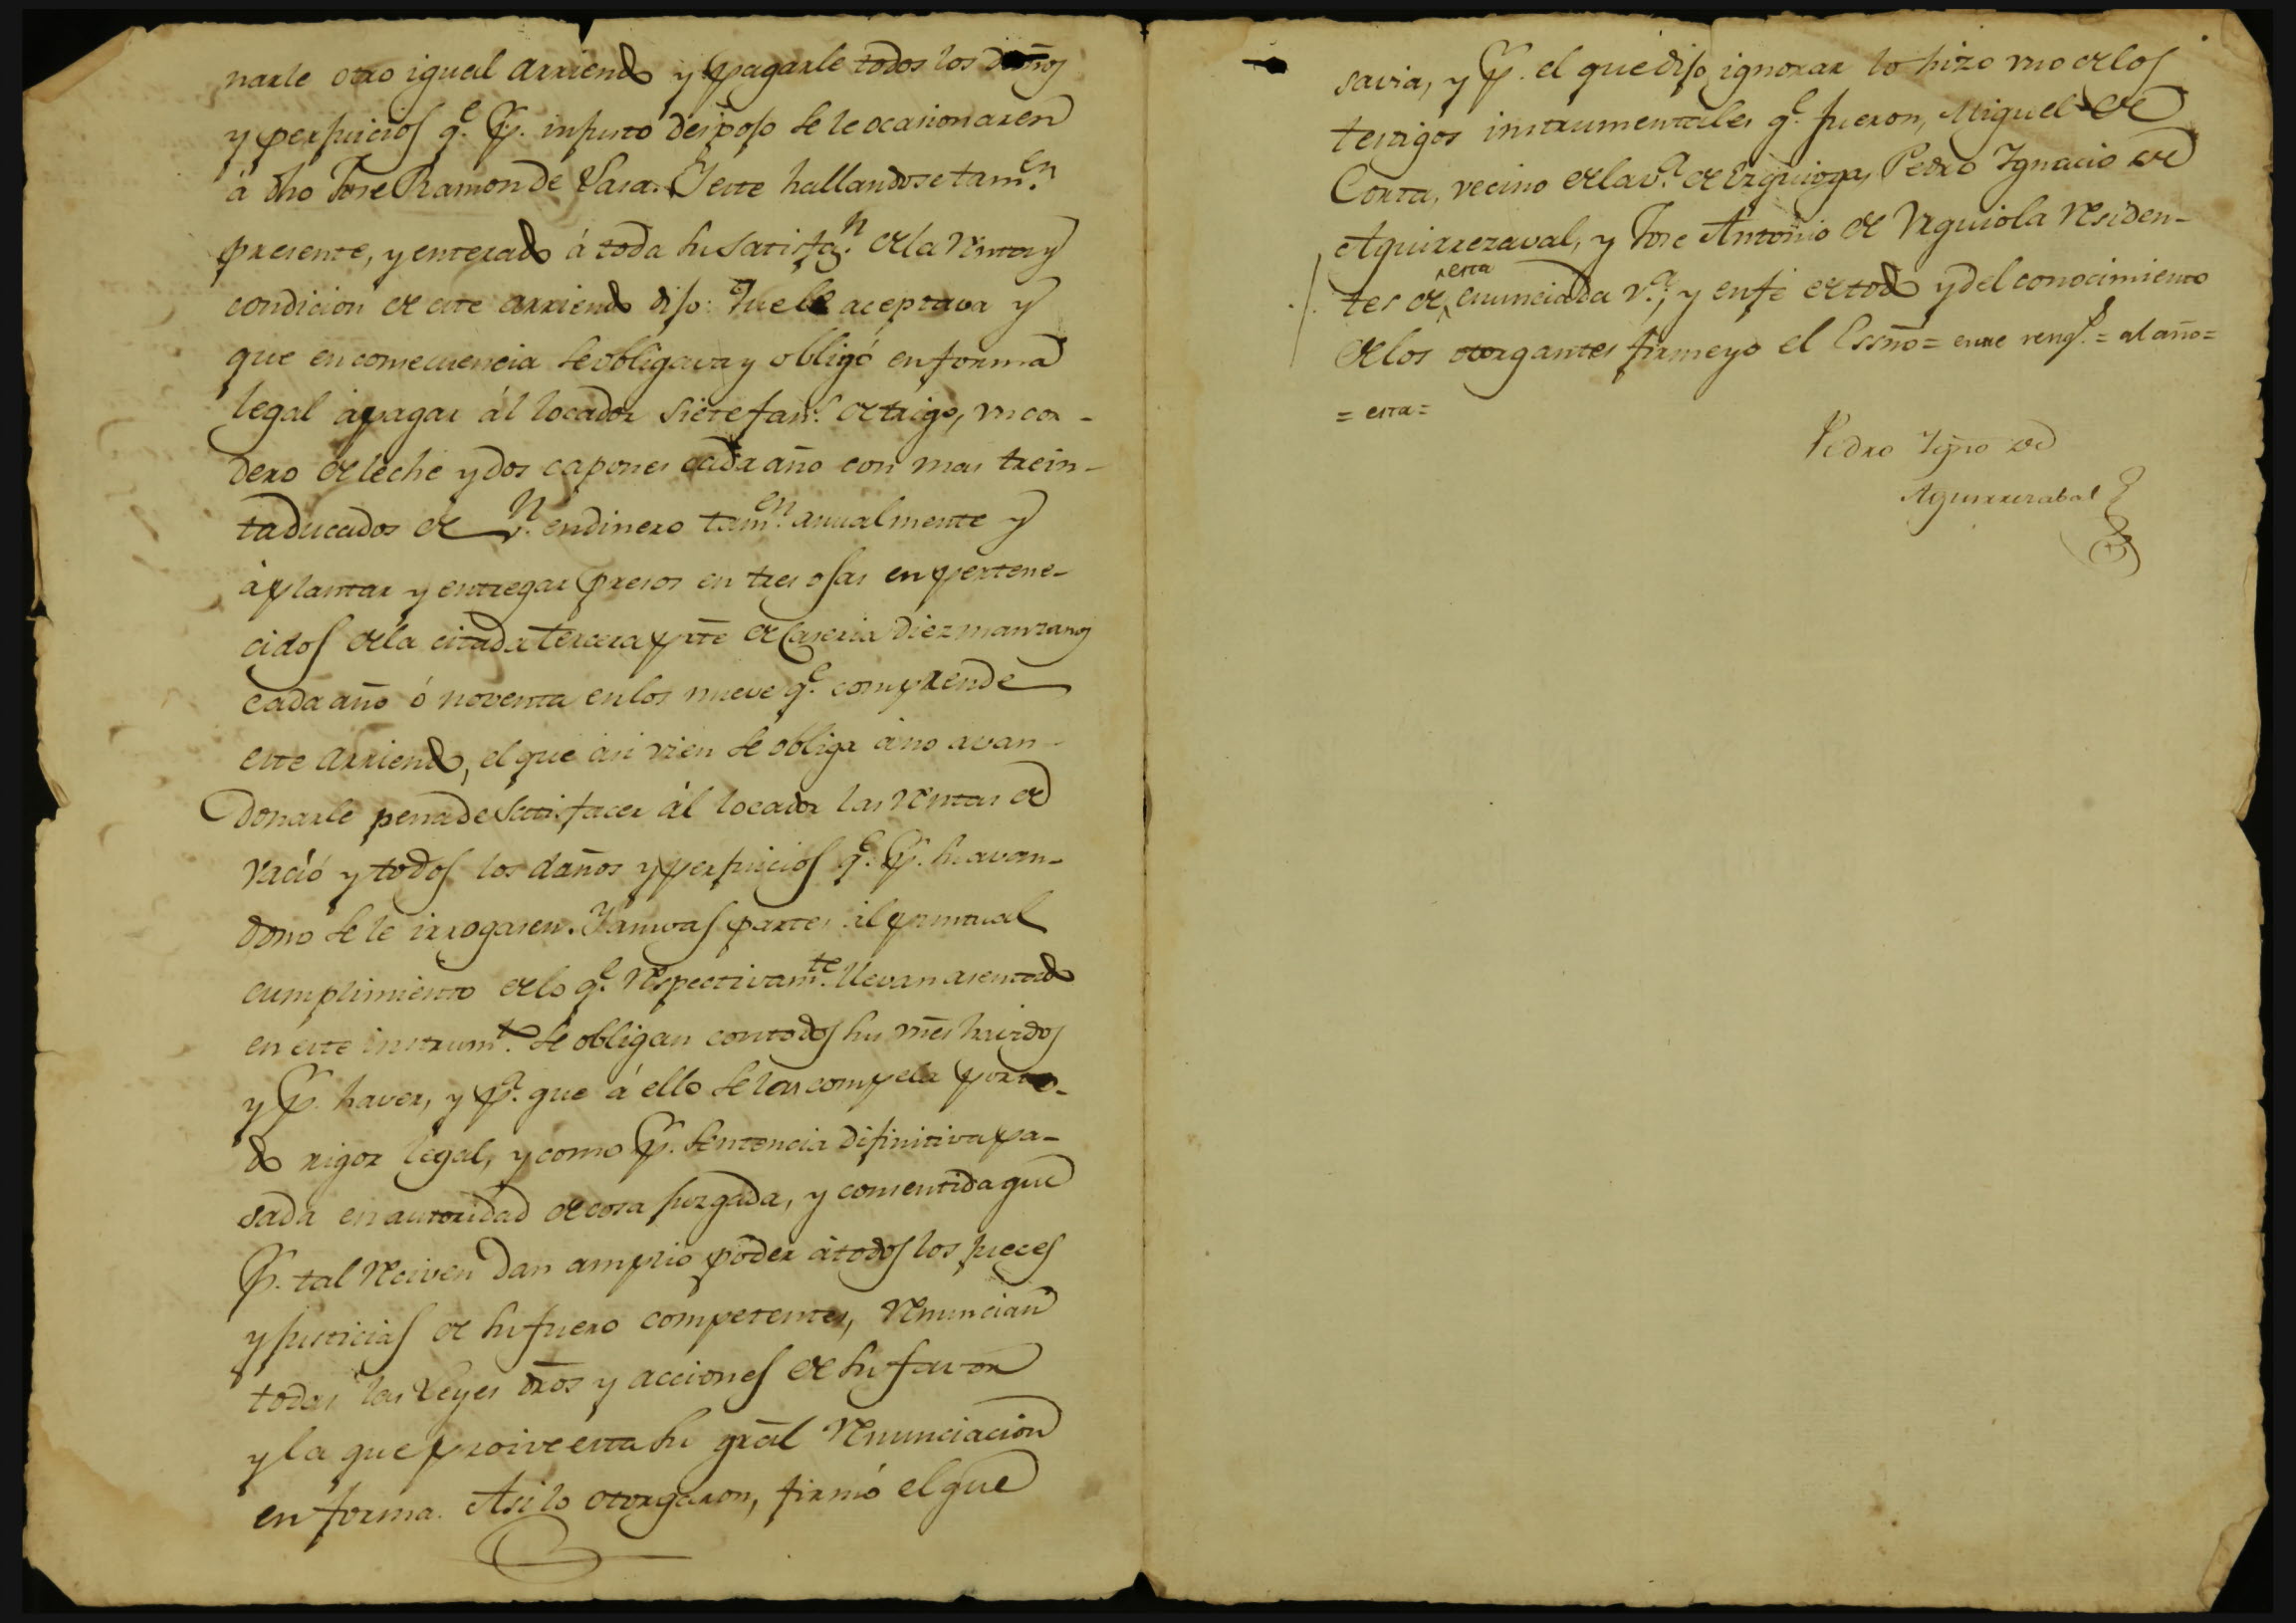 narle otro igual arriendo y pagarle todos los daños
y perjuicios q.e p.r injusto despojo se le ocasionaren
á dho Jose Ramon de Lasa. Y este hallandose tam.en
presente, y enterado á toda su satisfa.n de la renta y
condicion de este arriendo dijo: Que le aceptava y
que en consecuencia se obligava y obligó en forma
legal á pagar ál locador siete fan.s de trigo, un cor-
dero de leche y dos capones cada año con mas trein-
ta ducados de v.n en dinero tam.en anualmente y
á plantar y entregar presos en tres ojas en pertene-
cidos de la citada tercera pte de Caseria Diez manzanos
cada año ó noventa en los nueve q.e comprende
este arriendo, el que asi vien se obliga á no avan-
donarle pena de satisfacer ál locador las rentas de
vacio y todos los daños y perjuicios q.e p.r su avan-
dono se le irrogaren. Y amvas partes al puntual
cumplimiento de lo q.e respectivam.te llevan asentado
en este instrum.to se obligan con todos sus vnes havidos
y p.r haver, y p.a que á ello se les compela por to-
do rigor legal, y como p.r sentencia difinitiva pa-
sada en autoridad de cosa juzgada, y consentida que
p.r tal reciven dan amplio poder á todos los jueces
y justicias de su fuero competentes, renuncian
todas las Leyes dros y acciones de su favor
y la que proive esta su gral renunciacion
en forma. Asi lo otorgaron, firmó el que
savia, y p.r el que dijo ignorar lo hizo uno de los
testigos instrumentales q.e fueron, Miguel de
Corta, vecino de la v.a de Ezquioga, Pedro Ygnacio de
Aguirrezaval, y Jose Antonio de Urguiola residen-
esta
tes de enunciada v.a; y en fe de todo y del conocimiento
de los otorgantes firme yo el Essno = entre reng.s = al año =
= esta =
Pedro Ygno de
Aguirrezabal